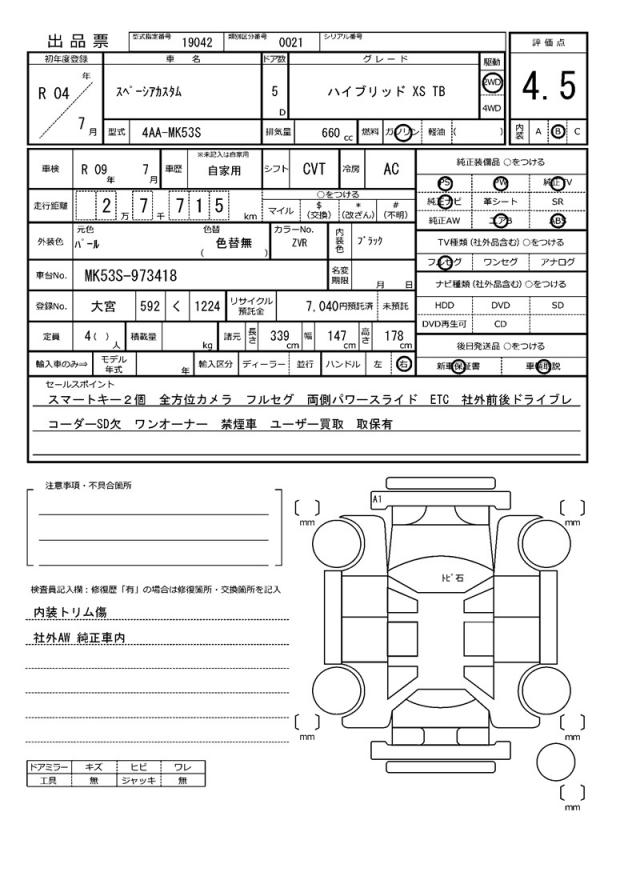 出品票 型式指定番号 19042 類別区分番号 0021 シリアル番号
評価点
4.5
内装 A B C
初年度登録 車名 ドア数 グレード 駆動
R 04 年 7 月 スペーシアカスタム 5 D ハイブリッド XS TB 2WD 4WD
型式 4AA-MK53S 排気量 660 cc 燃料 ガソリン 軽油 ( )
車検 R 09 年 7 月 車歴 ※未記入は自家用 自家用 シフト CVT 冷房 AC
走行距離 2 万 7 千 7 1 5 km ○をつける マイル $ (交換) * (改ざん) # (不明)
外装色 元色 パール 色替 ( 色替無 ) カラーNo. ZVR 内装色 ブラック
車台No. MK53S-973418 名変期限 月 日
登録No. 大宮 592 く 1224 リサイクル預託金 7,040円預託済 未預託
定員 4( ) 人 積載量 kg 諸元 長さ 339 cm 幅 147 cm 高さ 178 cm
輸入車のみ⇒ モデル年式 年 輸入区分 ディーラー 並行 ハンドル 左 右
純正装備品 ○をつける
PS PW 純正TV
純正ナビ 革シート SR
純正AW エアB ABS
TV種類 (社外品含む) ○をつける
フルセグ ワンセグ アナログ
ナビ種類 (社外品含む) ○をつける
HDD DVD SD
DVD再生可 CD
後日発送品 ○をつける
新車保証書 車輌取説
セールスポイント
スマートキー２個 全方位カメラ フルセグ 両側パワースライド ETC 社外前後ドライブレ
コーダーSD欠 ワンオーナー 禁煙車 ユーザー買取 取保有
注意事項・不具合箇所
検査員記入欄：修復歴「有」の場合は修復箇所・交換箇所を記入
内装トリム傷
社外AW 純正車内
ドアミラー キズ ヒビ ワレ
工具 無 ジャッキ 無
A1
mm
mm
トビ石
mm
mm
mm